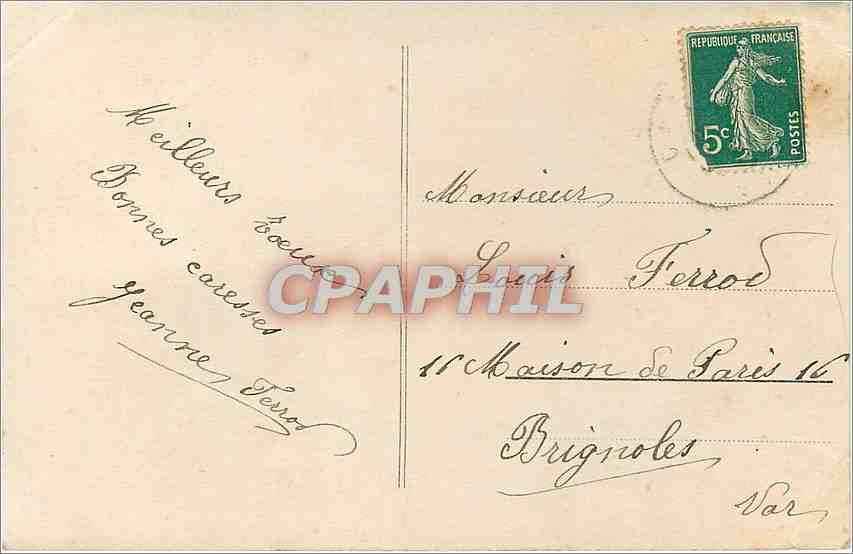 Meilleurs voeux
Bonnes caresses
Jeanne Ferrod
RÉPUBLIQUE FRANÇAISE
5c
POSTES
Monsieur
Louis Ferrod
16 Maison de Paris 16
Brignoles
Var
CPAPHIL